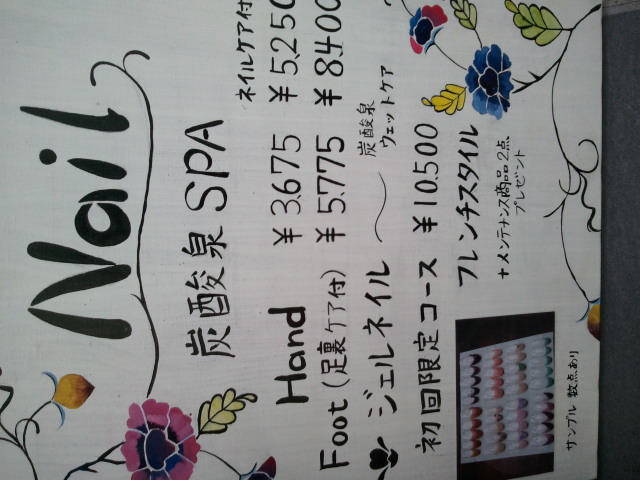 Nail
炭酸泉 SPA
ネイルケア付
Hand ¥3.675 ¥5.250
Foot (足裏ケア付) ¥5.775 ¥8.400
ジェルネイル 〜 炭酸泉
ウェットケア
初回限定コース ¥10.500
フレンチスタイル
+メンテナンス商品2点
プレゼント
サンプル 数点あり